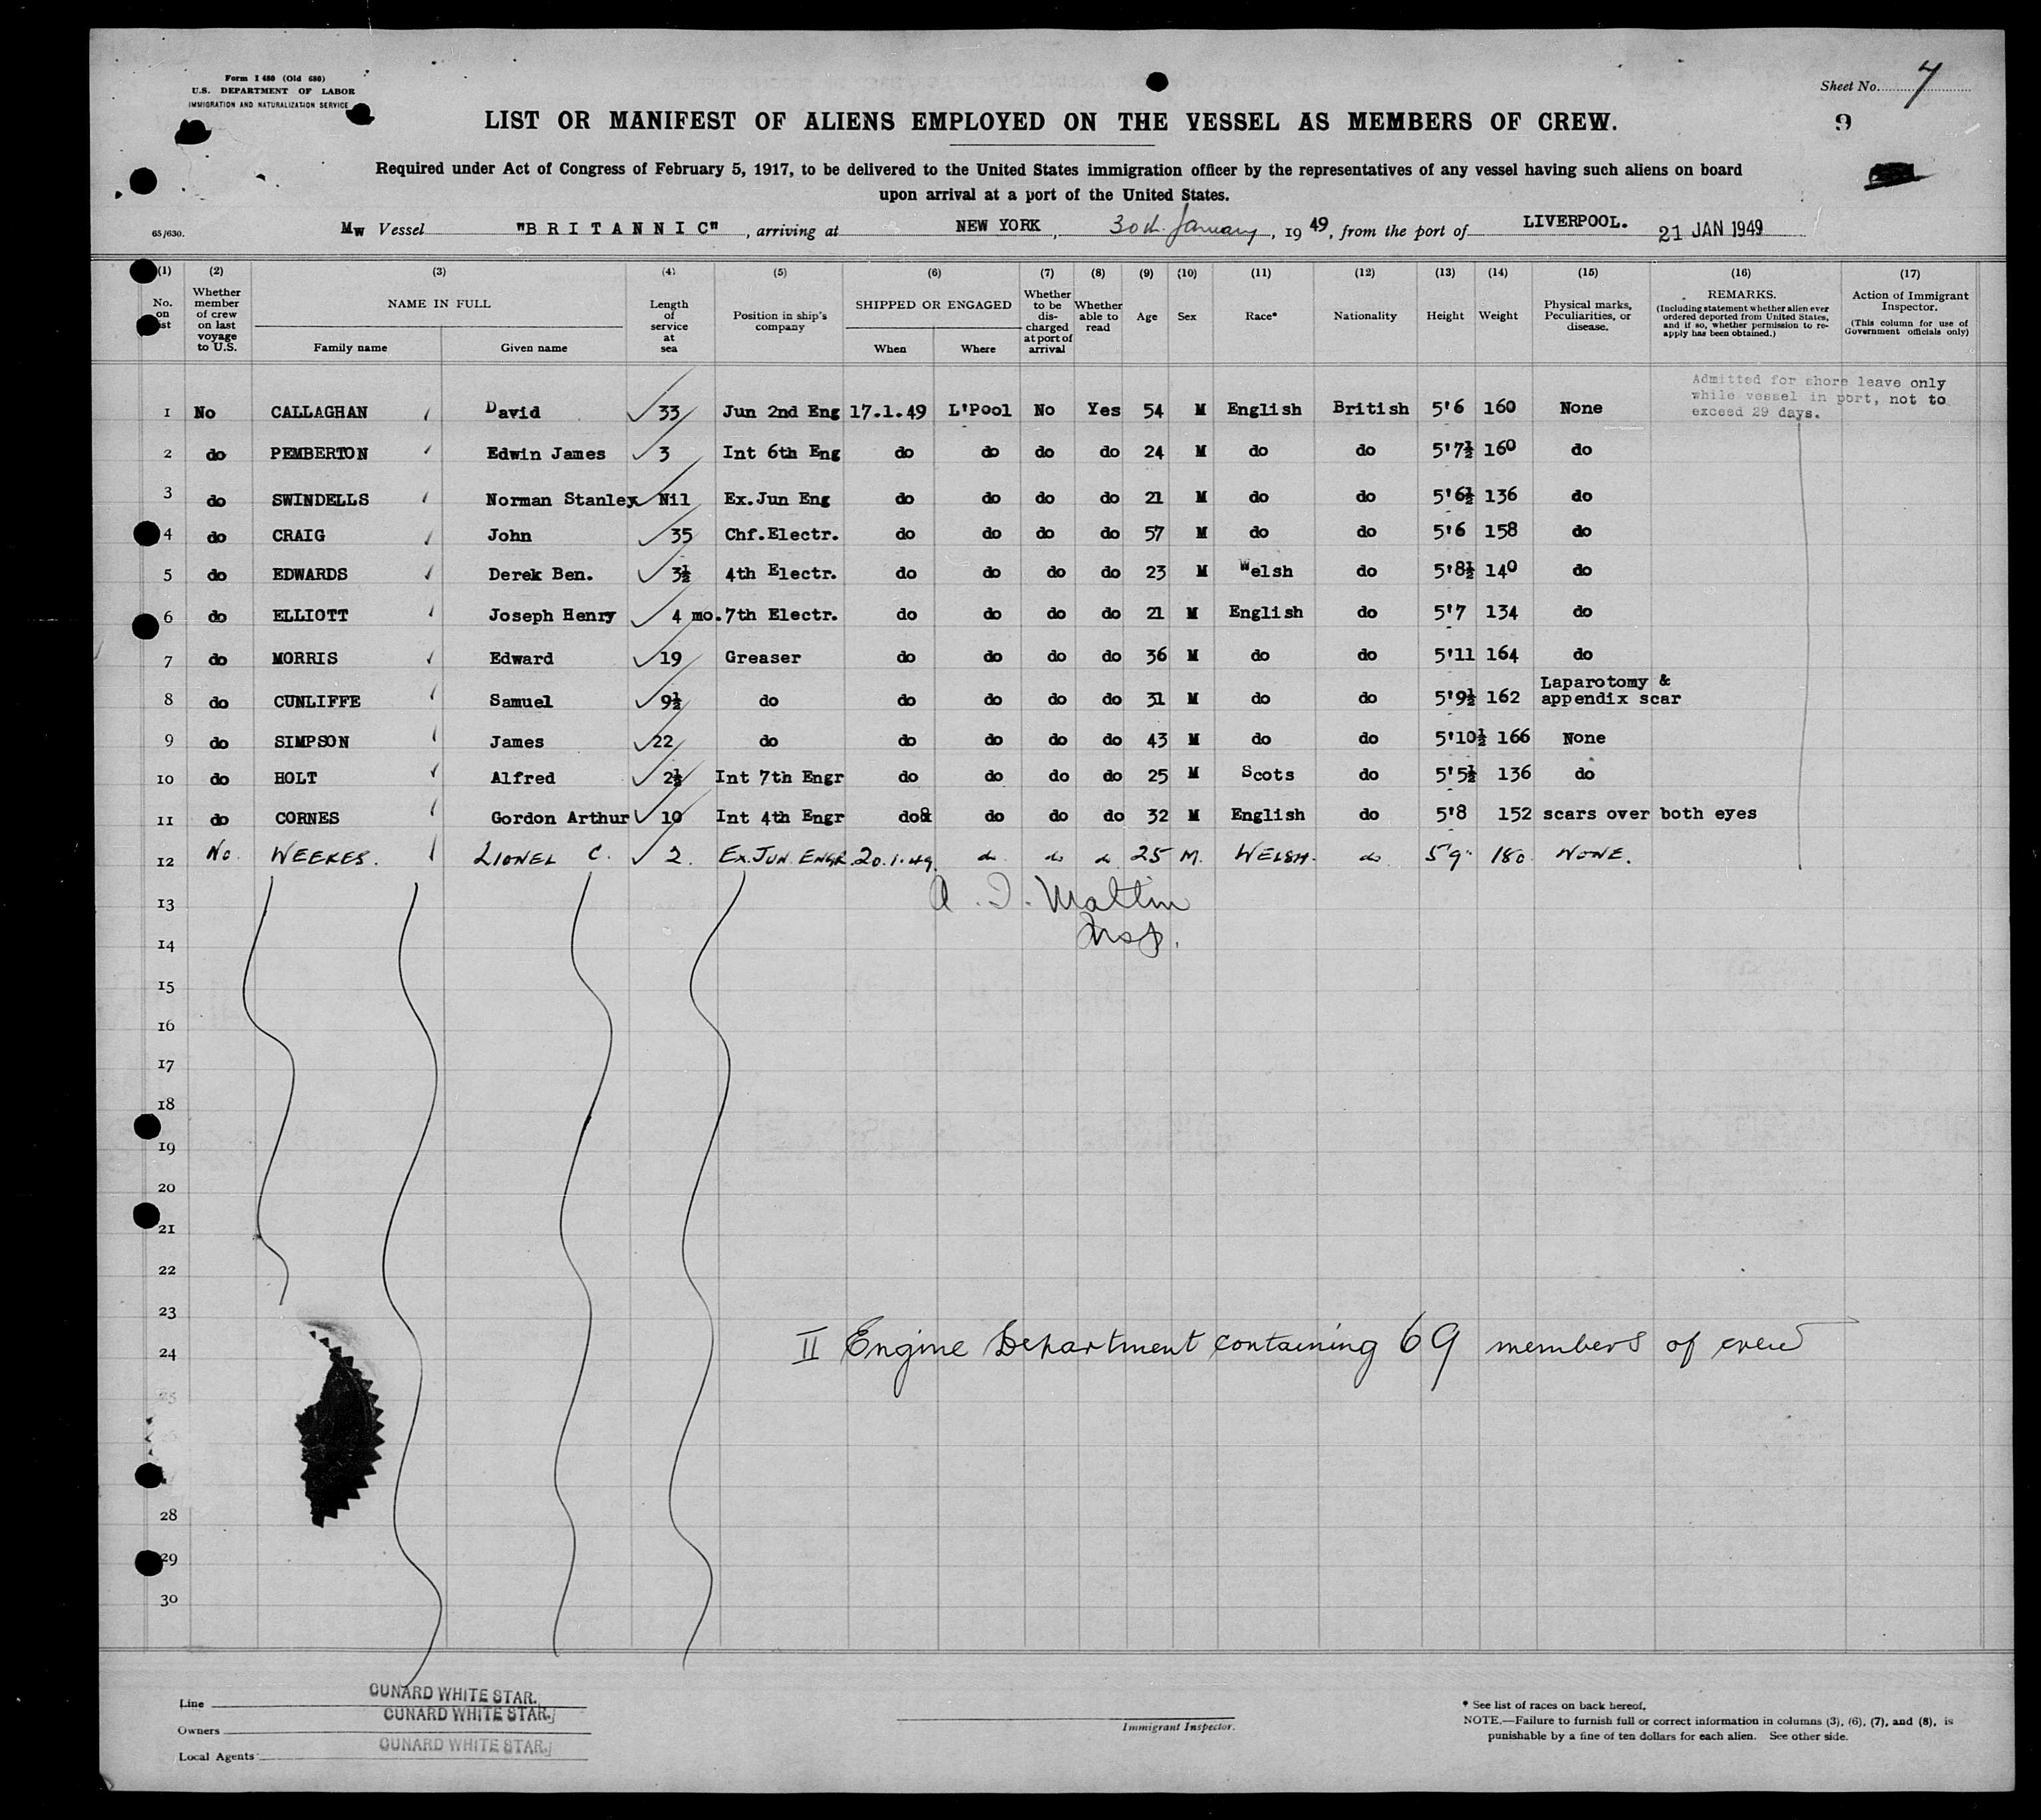 Form I 480 (Old 680)
U.S. DEPARTMENT OF LABOR
IMMIGRATION AND NATURALIZATION SERVICE
Sheet No. 7
9
LIST OR MANIFEST OF ALIENS EMPLOYED ON THE VESSEL AS MEMBERS OF CREW.
Required under Act of Congress of February 5, 1917, to be delivered to the United States immigration officer by the representatives of any vessel having such aliens on board
upon arrival at a port of the United States.
65/630. Mw Vessel "B R I T A N N I C", arriving at NEW YORK, 30th January, 19 49, from the port of LIVERPOOL. 21 JAN 1949
(1) (2) (3) (4) (5) (6) (7) (8) (9) (10) (11) (12) (13) (14) (15) (16) (17)
No. on
Whether member of crew on last voyage to U.S.
NAME IN FULL
Family name Given name
Length of service at sea
Position in ship's company
SHIPPED OR ENGAGED
When Where
Whether to be discharged at port of arrival
Whether able to read
Age
Sex
Race*
Nationality
Height
Weight
Physical marks, Peculiarities, or disease.
REMARKS.
(Including statement whether alien ever ordered deported from United States, and if so, whether permission to re-apply has been obtained.)
Action of Immigrant Inspector.
(This column for use of Government officials only)
Admitted for shore leave only
while vessel in port, not to
exceed 29 days.
1 No CALLAGHAN David 33 Jun 2nd Eng 17.1.49 L'Pool No Yes 54 M English British 5'6 160 None
2 do PEMBERTON Edwin James 3 Int 6th Eng do do do do 24 M do do 5'7½ 160 do
3 do SWINDELLS Norman Stanley Nil Ex.Jun Eng do do do do 21 M do do 5'6½ 136 do
4 do CRAIG John 35 Chf.Electr. do do do do 57 M do do 5'6 158 do
5 do EDWARDS Derek Ben. 3½ 4th Electr. do do do do 23 M Welsh do 5'8½ 140 do
6 do ELLIOTT Joseph Henry 4 mo. 7th Electr. do do do do 21 M English do 5'7 134 do
7 do MORRIS Edward 19 Greaser do do do do 36 M do do 5'11 164 do
8 do CUNLIFFE Samuel 9½ do do do do do 31 M do do 5'9½ 162 Laparotomy & appendix scar
9 do SIMPSON James 22 do do do do do 43 M do do 5'10½ 166 None
10 do HOLT Alfred 2½ Int 7th Engr do do do do 25 M Scots do 5'5½ 136 do
11 do CORNES Gordon Arthur 10 Int 4th Engr do& do do do 32 M English do 5'8 152 scars over both eyes
12 No. WEEKES. LIONEL C. 2. EX. JUN. ENGR. 20.1.49. do do do 25 M. WELSH. do 5'9" 180 NONE.
13
14
15
16
17
18
19
20
21
22
23
24
II Engine Department containing 69 members of crew
28
29
30
Line CUNARD WHITE STAR.
Owners CUNARD WHITE STAR.
Local Agents CUNARD WHITE STAR.
Immigrant Inspector.
* See list of races on back hereof.
NOTE.—Failure to furnish full or correct information in columns (3), (6), (7), and (8), is
punishable by a fine of ten dollars for each alien. See other side.